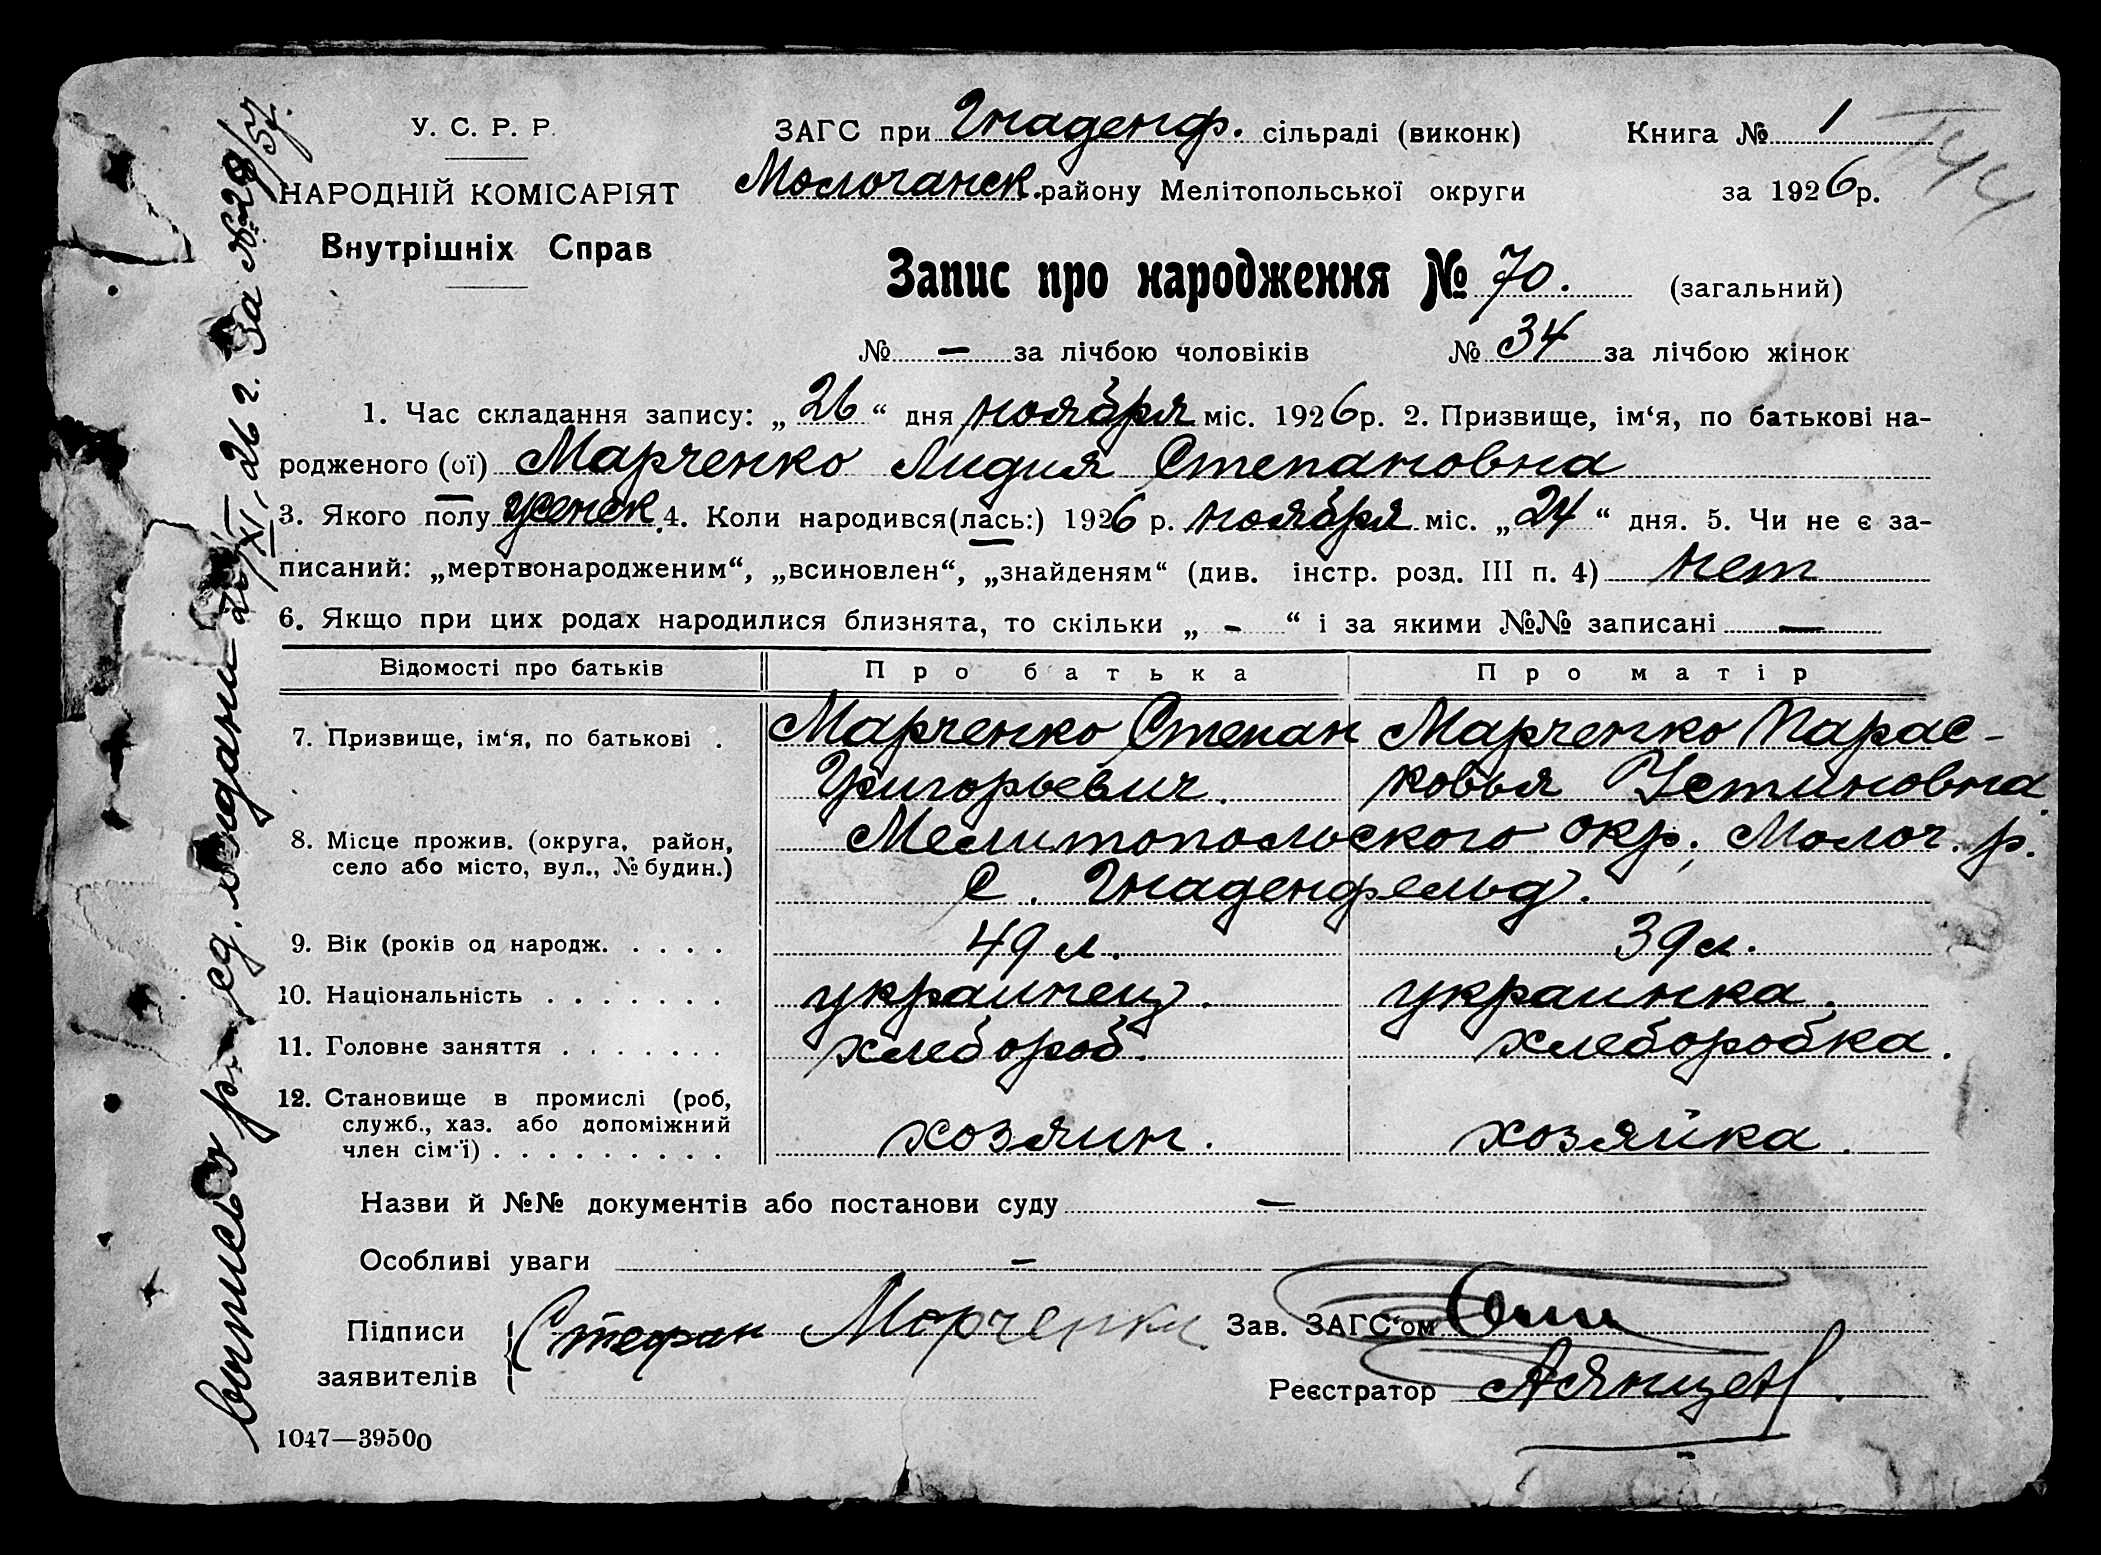 У. С. Р. Р.
НАРОДНІЙ КОМІСАРІЯТ
Внутрішніх Справ
ЗАГС при Гнаденф. сільраді (виконк)
Книга № 1
Молочанск. району Мелітопольської округи
за 1926 р.
Запис про народження № 70. (загальний)
№ — за лічбою чоловіків № 34 за лічбою жінок
1. Час складання запису: „ 26 “ дня ноября міс. 1926 р. 2. Призвище, ім‘я, по батькові на-
родженого (ої) Марченко Лидия Степановна
3. Якого полу женск. 4. Коли народився(лась:) 1926 р. ноября міс. „ 24 “ дня. 5. Чи не є за-
писаний: „мертвонародженим“, „всиновлен“, „знайденям“ (див. інстр. розд. III п. 4) нет
6. Якщо при цих родах народилися близнята, то скільки „ - “ і за якими №№ записані —
Відомості про батьків Про батька Про матір
7. Призвище, ім‘я, по батькові . Марченко Степан Марченко Парас-
Григорьевич. ковья Устиновна.
8. Місце прожив. (округа, район, Мелитопольского окр., Молоч. р.
село або місто, вул., № будин.) с. Гнаденфельд.
9. Вік (років од народж. . . . . 49 л. 39 л.
10. Національність . . . . . . . украинец. украинка.
11. Головне заняття . . . . . . . хлебороб. хлеборобка.
12. Становище в промислі (роб,
служб., хаз. або допоміжний
член сім‘ї) . . . . . . . . . хозяин. хозяйка.
Назви й №№ документів або постанови суду —
Особливі уваги —
Підписи заявителів Стефан Марченки
Зав. ЗАГС‘ом
Реєстратор
1047—39500
выпись о рожд. выдана 26/XI, 26 г. за № 28/57.